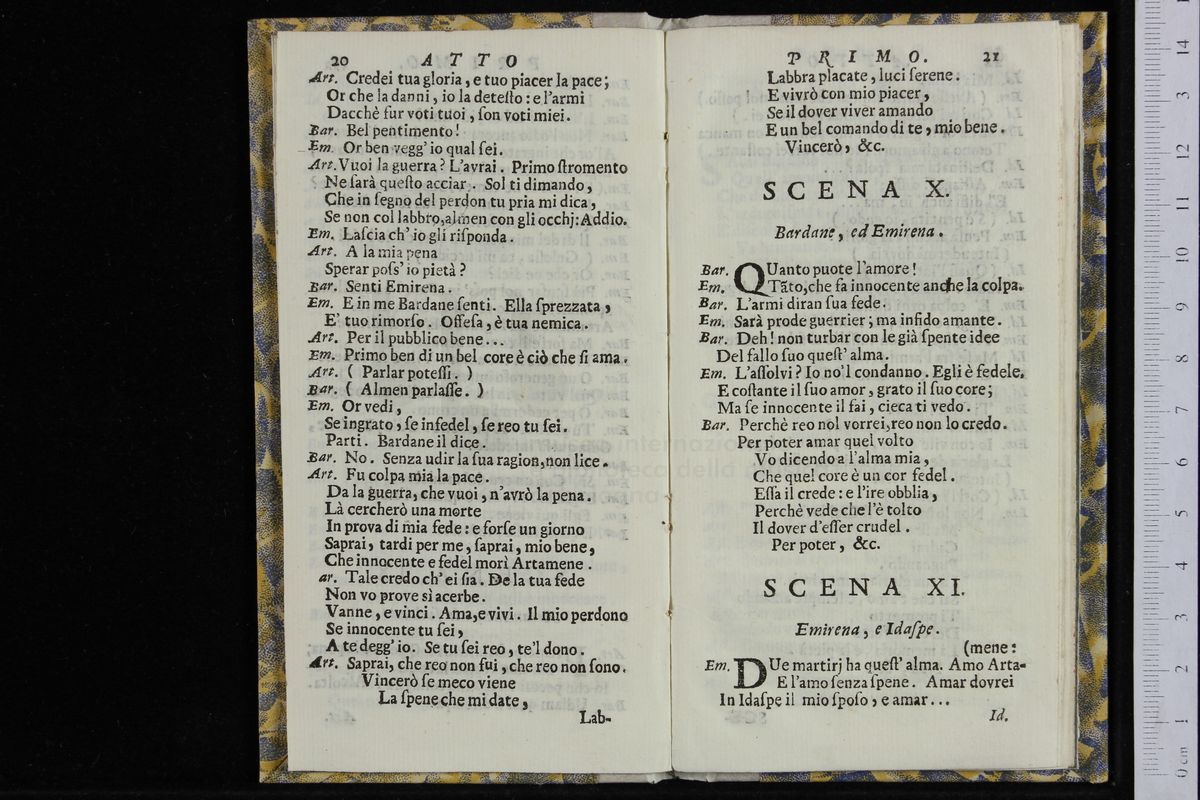 20 ATTO
Art. Credei tua gloria, e tuo piacer la pace;
Or che la danni, io la deteſto: e l'armi
Dacchè fur voti tuoi, ſon voti miei.
Bar. Bel pentimento!
Em. Or ben vegg' io qual ſei.
Art. Vuoi la guerra? L'avrai. Primo ſtromento
Ne ſarà queſto acciar. Sol ti dimando,
Che in ſegno del perdon tu pria mi dica,
Se non col labbro, almen con gli occhj: Addio.
Em. Laſcia ch' io gli riſponda.
Art. A la mia pena
Sperar poſs' io pietà?
Bar. Senti Emirena.
Em. E in me Bardane ſenti. Ella ſprezzata,
E' tuo rimorſo. Offeſa, è tua nemica.
Art. Per il pubblico bene...
Em. Primo ben di un bel core è ciò che ſi ama.
Art. ( Parlar poteſſi. )
Bar. ( Almen parlaſſe. )
Em. Or vedi,
Se ingrato, ſe infedel, ſe reo tu ſei.
Parti. Bardane il dice.
Bar. No. Senza udir la ſua ragion, non lice.
Art. Fu colpa mia la pace.
Da la guerra, che vuoi, n'avrò la pena.
Là cercherò una morte
In prova di mia fede: e forſe un giorno
Saprai, tardi per me, ſaprai, mio bene,
Che innocente e fedel morì Artamene.
ar. Tale credo ch' ei ſia. De la tua fede
Non vo prove sì acerbe.
Vanne, e vinci. Ama, e vivi. Il mio perdono
Se innocente tu ſei,
A te degg' io. Se tu ſei reo, te'l dono.
Art. Saprai, che reo non fui, che reo non ſono.
Vincerò ſe meco viene
La ſpene che mi date,
Lab-
PRIMO. 21
Labbra placate, luci ſerene.
E vivrò con mio piacer,
Se il dover viver amando
E un bel comando di te, mio bene.
Vincerò, &c.
SCENA X.
Bardane, ed Emirena.
Bar. QUanto puote l'amore!
Em. Tãto, che fa innocente anche la colpa.
Bar. L'armi diran ſua fede.
Em. Sarà prode guerrier; ma infido amante.
Bar. Deh! non turbar con le già ſpente idee
Del fallo ſuo queſt' alma.
Em. L'aſſolvi? Io no'l condanno. Egli è fedele.
E coſtante il ſuo amor, grato il ſuo core;
Ma ſe innocente il fai, cieca ti vedo.
Bar. Perchè reo nol vorrei, reo non lo credo.
Per poter amar quel volto
Vo dicendo a l'alma mia,
Che quel core è un cor fedel.
Eſſa il crede: e l'ire obblia,
Perchè vede che l'è tolto
Il dover d'eſſer crudel.
Per poter, &c.
SCENA XI.
Emirena, e Idaſpe.
(mene:
Em. DUe martirj ha queſt' alma. Amo Arta-
E l'amo ſenza ſpene. Amar dovrei
In Idaſpe il mio ſpoſo, e amar...
Id.